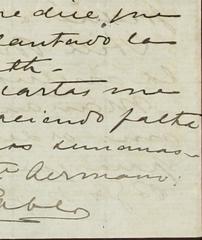 re dice que
lantado la
th-
cartas me
aciendo falta
as semanas-
te hermano:
Pablo